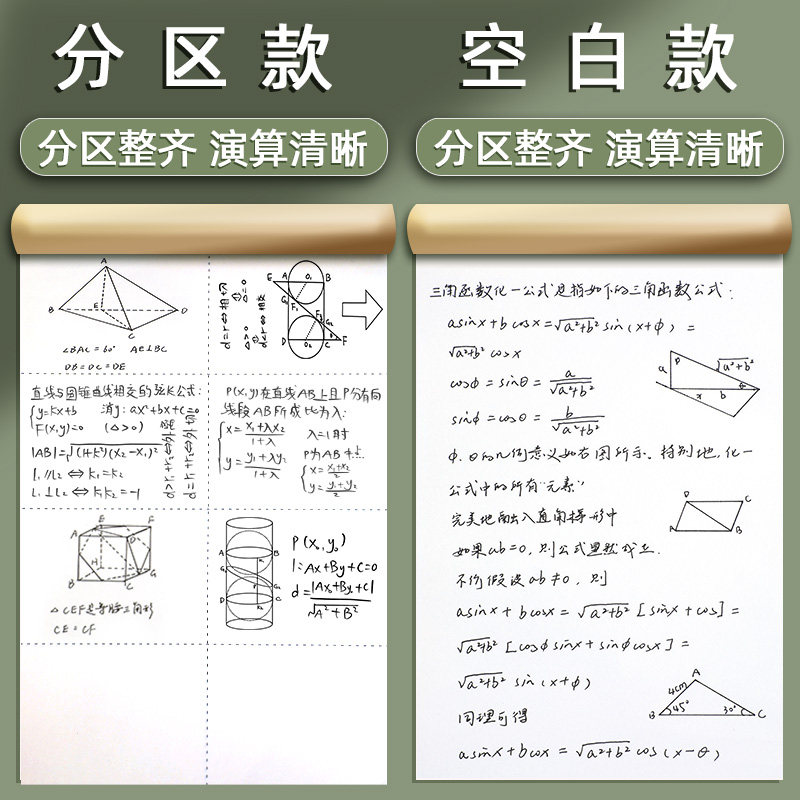 分区款
分区整齐 演算清晰
A
B
E
D
C
∠BAC=60° AE⊥BC
DB=DC=DE
d=r⇔相切
Δ=0
Δ>0
d<r⇔相交
E
A
O₁
B
G₁
F₁
G₂
D
O₂
C
F
直线与圆锥曲线相交的弦长公式:
y=kx+b 消y: ax²+bx+c=0
F(x,y)=0 (Δ>0)
|AB|=√(1+k²)(x₂-x₁)²
l₁∥l₂⇔k₁=k₂
l₁⊥l₂⇔k₁k₂=-1
P(x,y)在直线AB上且P分有向
线段AB所成比为λ:
x=x₁+λx₂/1+λ λ=1时
y=y₁+λy₂/1+λ P为AB中点
x=x₁+x₂/2
y=y₁+y₂/2
E
F
A
D
H
G
B
C
△CEF是等腰三角形
CE=CF
A
B
G
D
C
P(x₀,y₀)
l=Ax+By+C=0
d=|Ax₀+By₀+C|/√A²+B²
空白款
分区整齐 演算清晰
三角函数化一公式是指如下的三角函数公式:
asinx+bcosx=√a²+b² sin(x+φ)=
√a²+b² cosx
cosφ=sinθ=a/√a²+b²
sinφ=cosθ=b/√a²+b²
a
D
√a²+b²
x
b
φ
φ、θ的几何意义如右图所示。特别地,化一
公式中的所有“元素”
完美地融入直角梯形中
D
C
A
B
如果ab=0,则公式显然成立.
不妨假设ab≠0,则
asinx+bcosx=√a²+b²[sinx+cos]=
√a²+b²[cosφsinx+sinφcosx]=
√a²+b² sin(x+φ)
A
4cm
B
45°
30°
C
同理可得
asinx+bcosx=√a²+b² cos(x-θ)